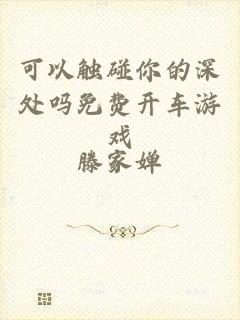 可以触碰你的深
处吗免费开车游
戏
滕家婵